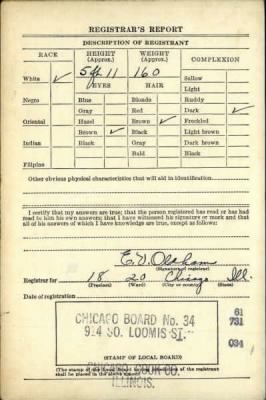 REGISTRAR'S REPORT
DESCRIPTION OF REGISTRANT
RACE HEIGHT (Approx.) WEIGHT (Approx.) COMPLEXION
White ✓ 5 ft 11 160 Sallow
EYES HAIR Light
Negro Blue Blonde Ruddy
Gray Red Dark ✓
Oriental Hazel Brown ✓ Freckled
Brown ✓ Black Light brown
Indian Black Gray Dark brown
Bald Black
Filipino
Other obvious physical characteristics that will aid in identification
I certify that my answers are true; that the person registered has read or has had
read to him his own answers; that I have witnessed his signature or mark and that
all of his answers of which I have knowledge are true, except as follows:
(Signature of registrar)
Registrar for 18 20 Chicago Ill.
(Precinct) (Ward) (City or county) (State)
Date of registration
CHICAGO BOARD No. 34
914 SO. LOOMIS ST.
61
731
034
(STAMP OF LOCAL BOARD)
(The stamp of the Local Board of the registrant
shall be placed in the above space.)
CHICAGO, COOK CO.
ILLINOIS.